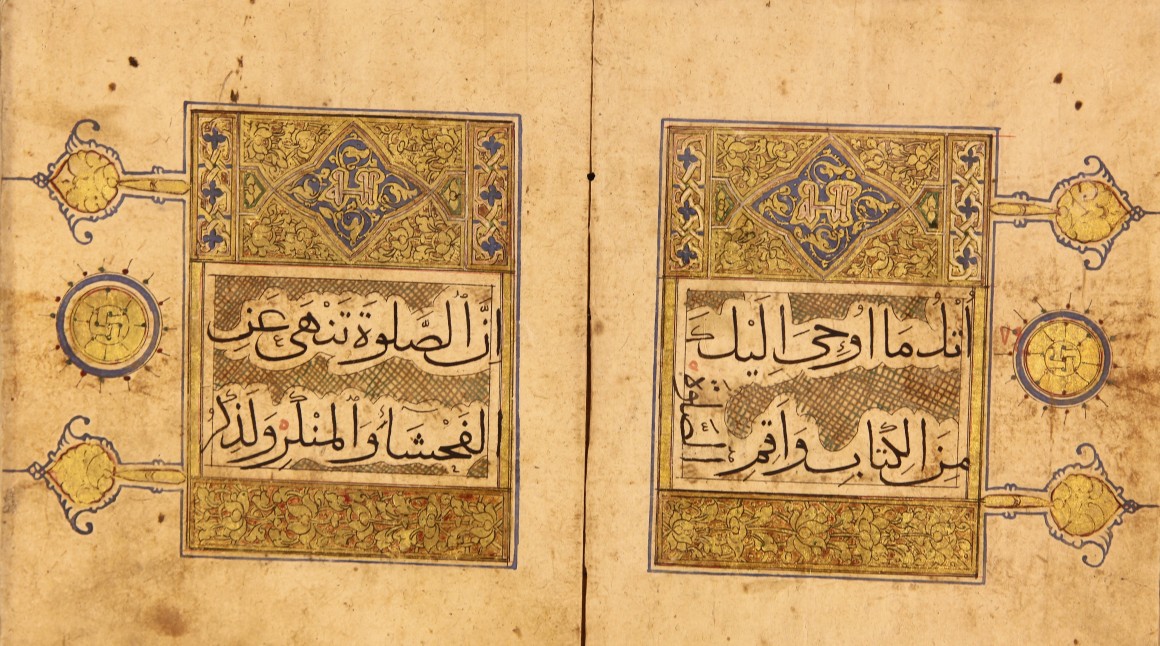 أُتْلُ مَا اُوحِىَ اِلَيْكَ
مِنَ الْكِتَابِ وَاَقِمِ
الصَّلوةَ
اِنَّ الصَّلوةَ تَنْهَى عَنِ
الفَحْشَاءِ وَالمُنْكَرِ وَلَذِكْرُ